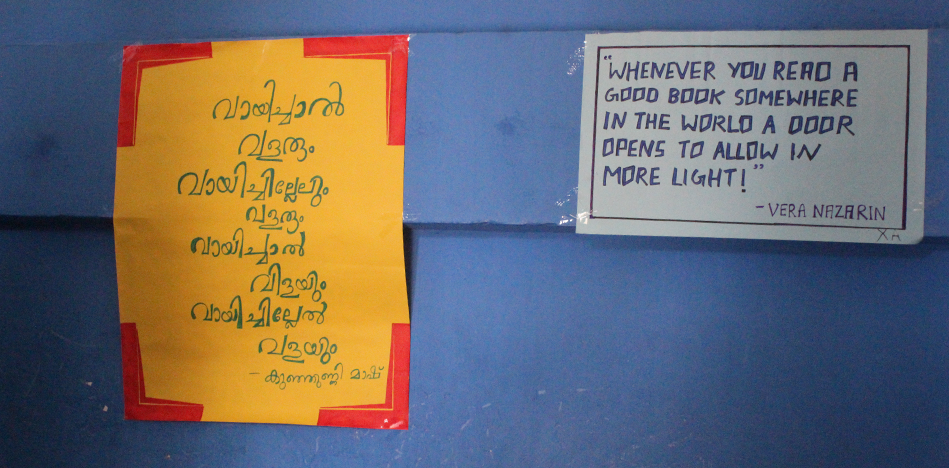 വായിച്ചാൽ
വളരും
വായിച്ചില്ലേലും
വളരും
വായിച്ചാൽ
വിളയും
വായിച്ചില്ലേൽ
വളയും
- കുഞ്ഞുണ്ണി മാഷ്
"WHENEVER YOU READ A
GOOD BOOK SOMEWHERE
IN THE WORLD A DOOR
OPENS TO ALLOW IN
MORE LIGHT!"
-VERA NAZARIN